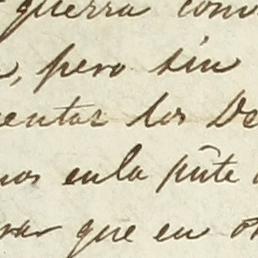 guerra com
, pero sin
entar los De
nos en la pñte
rar que en o